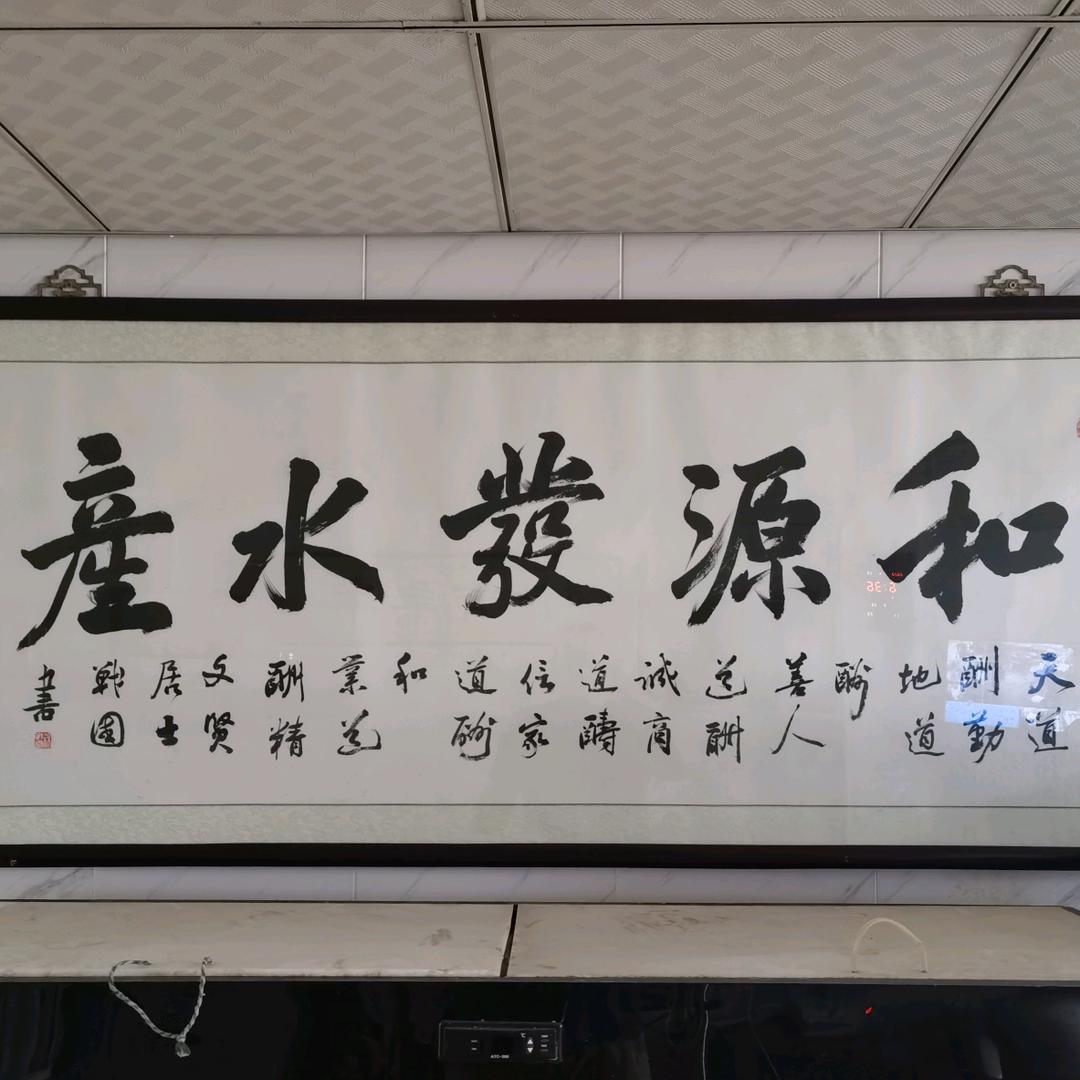 和源發水產
天道
酬勤
地道
酬
善人
道酬
誠商
道醻
信家
道酬
和
業道
酬精
文賢
居士
戰國
℃